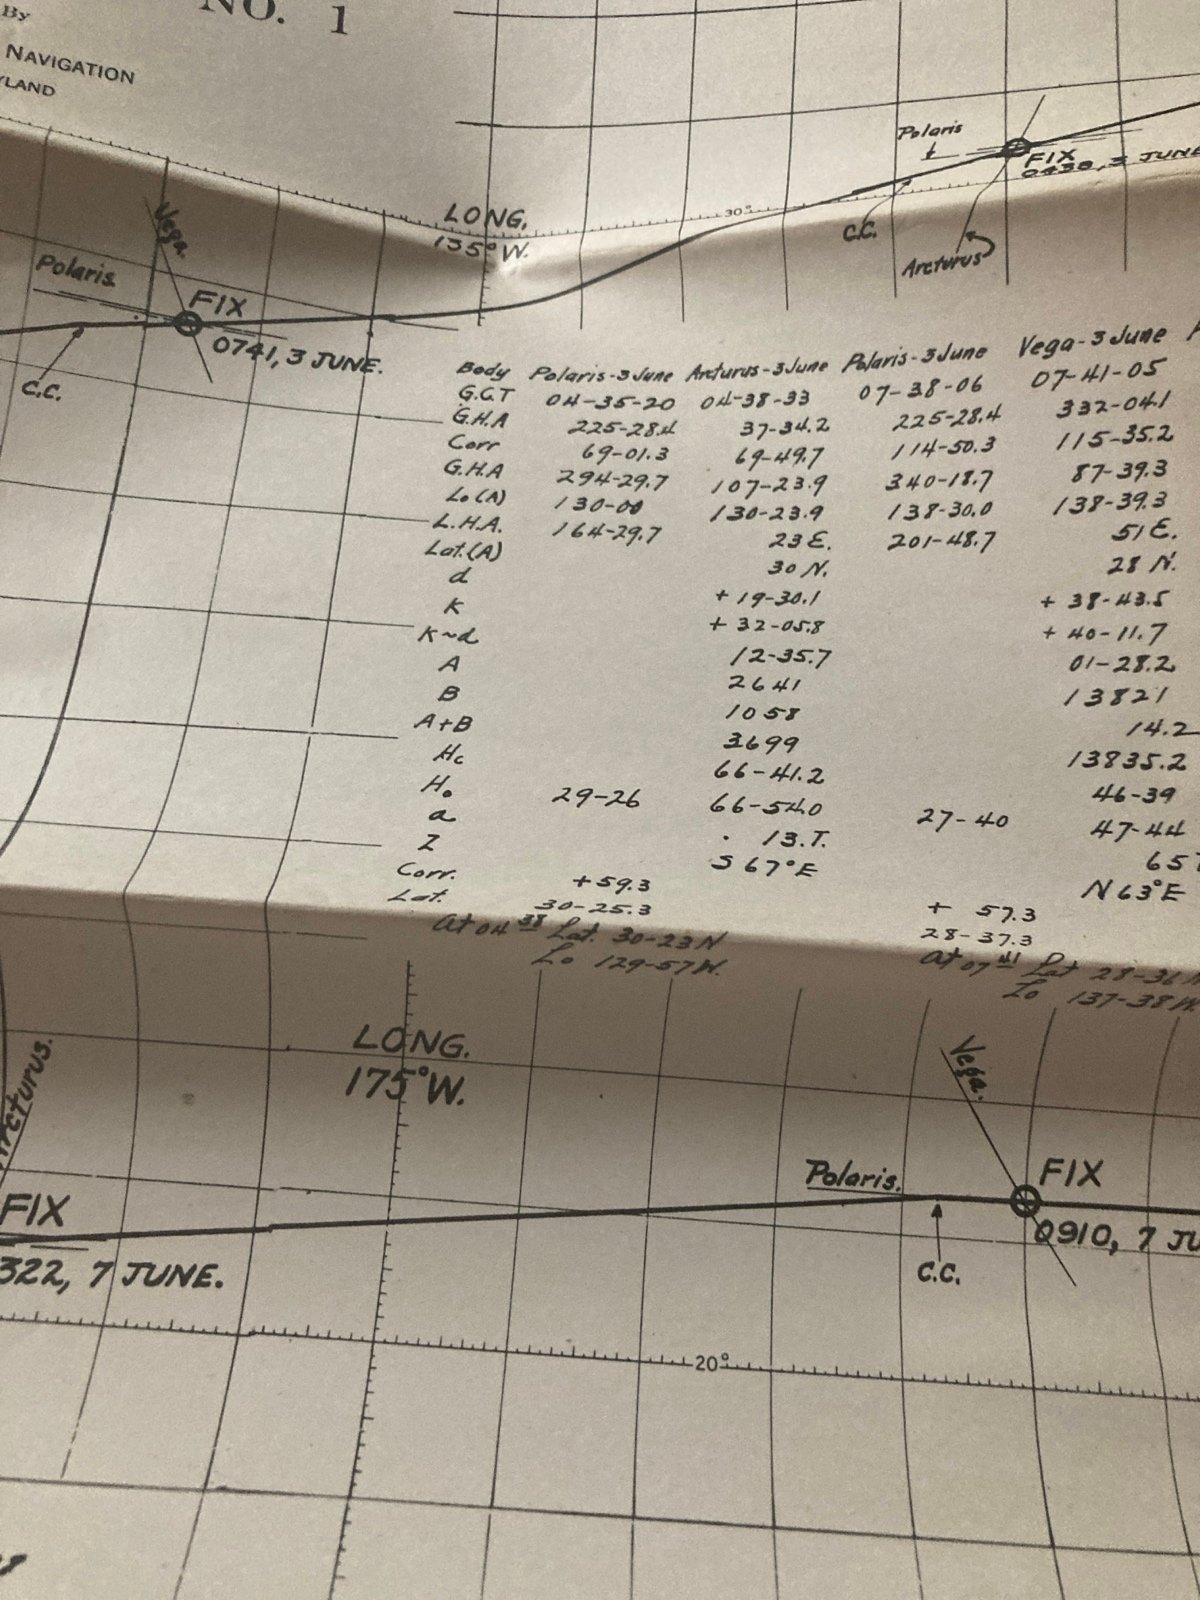 By
NO. 1
NAVIGATION
YLAND
Polaris
FIX
0438, 3 JUNE
30°
LONG.
135°W.
C.C.
Arcturus
Vega.
Polaris.
FIX
0741, 3 JUNE.
C.C.
Body Polaris-3June Arcturus-3June Polaris-3June Vega-3June
G.C.T 04-35-20 04-38-33 07-38-06 07-41-05
G.H.A 225-28.4 37-34.2 225-28.4 332-04.1
Corr 69-01.3 69-49.7 114-50.3 115-35.2
G.H.A 294-29.7 107-23.9 340-18.7 87-39.3
Lo(A) 130-00 130-23.9 138-30.0 138-39.3
L.H.A. 164-29.7 23E. 201-48.7 51E.
Lat.(A) 30N. 28N.
d +19-30.1 +38-43.5
K +32-05.8 +40-11.7
K~d 12-35.7 01-28.2
A 2641 13821
B 1058 14.2
A+B 3699 13835.2
Hc 66-41.2 46-39
Ho 29-26 66-54.0 27-40 47-44
a 13.T. 65T
Z S67°E N63°E
Corr. +59.3 + 57.3
Lat. 30-25.3 28-37.3
At 04 38 Lat. 30-23N At 07 41 Lat 28-36N
Lo 129-57W. Lo 137-38W.
LONG.
175°W.
Vega.
Arcturus.
Polaris.
FIX
0910, 7 JU
FIX
322, 7 JUNE.
C.C.
20°